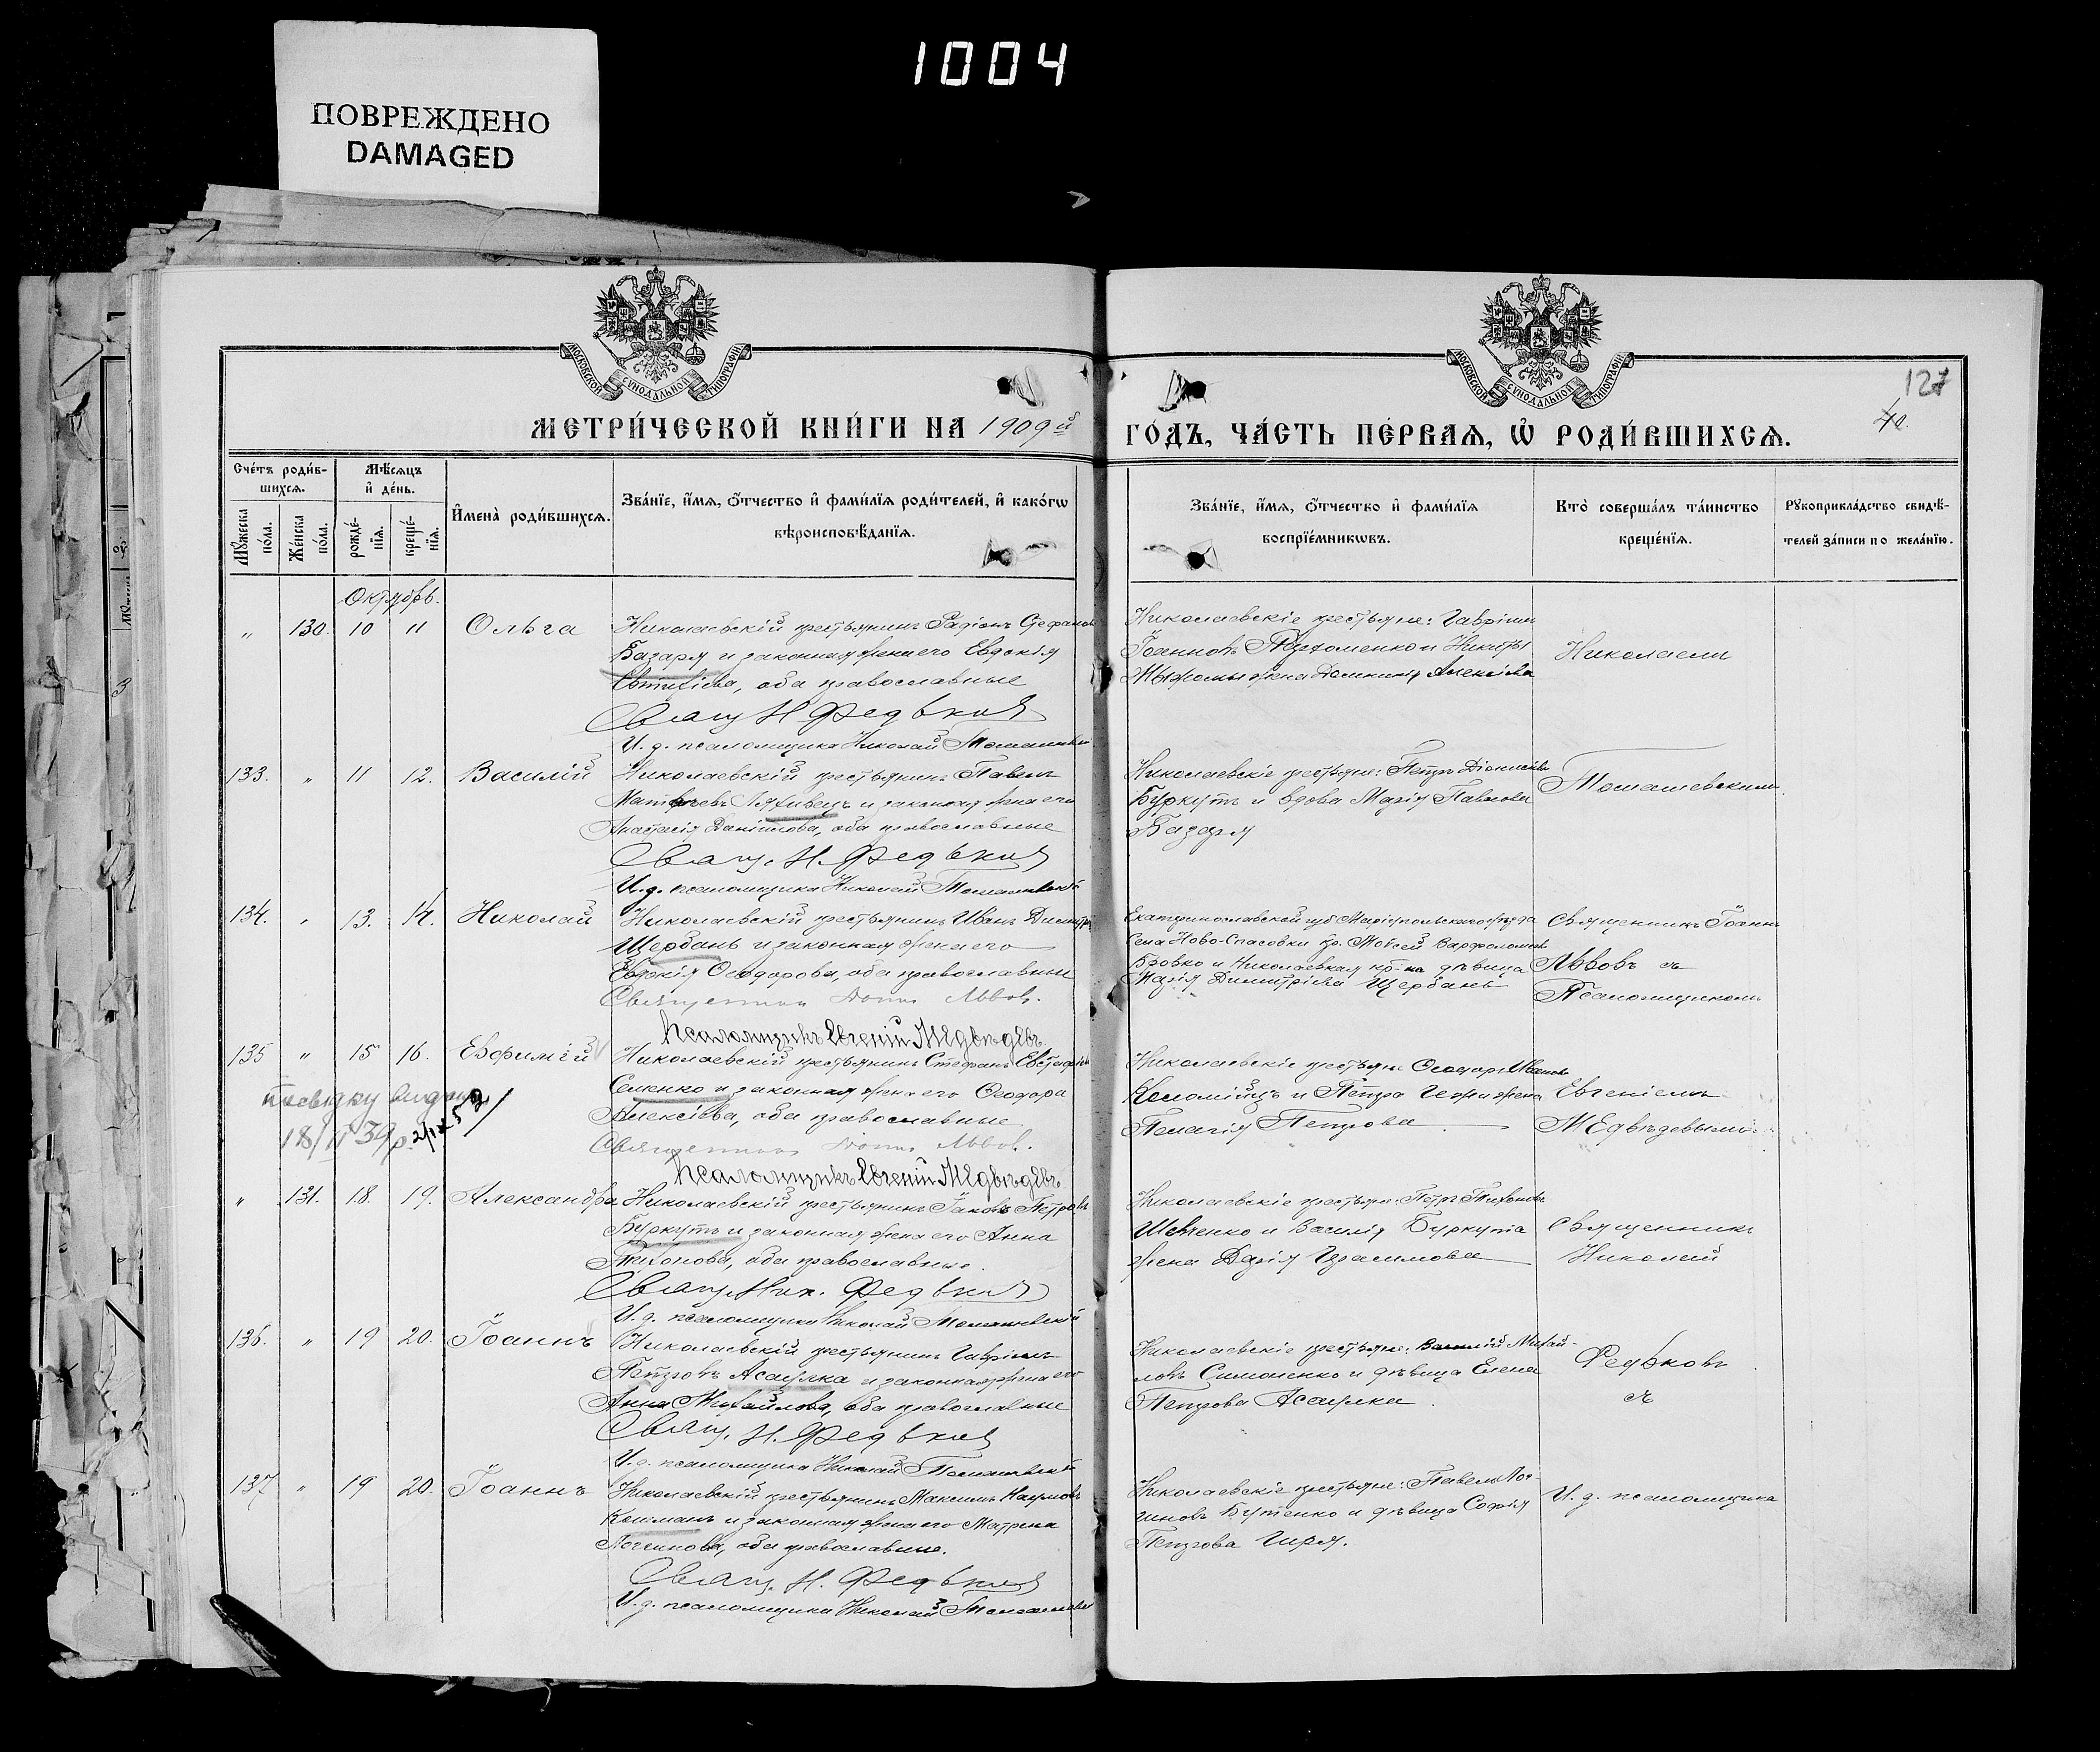 1004
ПОВРЕЖДЕНО
DAMAGED
МОСКОВСКОЙ СУНОДАЛЬНОЙ ТИПОГРАФІИ
МОСКОВСКОЙ СУНОДАЛЬНОЙ ТИПОГРАФІИ
127
МЕТРИ́ЧЕСКОЙ КНИ́ГИ НА 1909й
ГО́ДЪ, ЧА́СТЬ ПЕ́РВАѦ, Ѡ҆ РОДИ́ВШИХСѦ.
Сче́тъ роди́в-
шихсѧ.
Мѣ́сѧцъ
и҆ де́нь.
Мꙋ́жеска по́ла.
Же́нска по́ла.
рожде́-
нїѧ.
креще́-
нїѧ.
И҆мена̀ роди́вшихсѧ.
Зва́нїе, и҆́мѧ, ѻ҆́тчество и҆ фами́лїѧ роди́телей, и҆ како́гѡ
вѣроисповѣ́данїѧ.
Зва́нїе, и҆́мѧ, ѻ҆́тчество и҆ фами́лїѧ
воспрїе́мникѡвъ.
Кто̀ соверша́лъ та́инство
креще́нїѧ.
Рꙋкоприкла́дство свидѣ́-
телей за́писи по жела́нїю.
Октябрь.
„ 130. 10 11 Ольга
Николаевскій крестьянинъ Радіонъ Стефановъ
Базаря и законная жена его Евдокія
оба православные
Свящ. Н. Федьковъ
И. д. псаломщика Николай Томашевскій
Николаевскіе крестьяне: Гавріилъ
Іоанновъ Пархоменко и Никиты
жена Домникія Алексіева
Николаемъ
133. „ 11 12. Василій
Николаевскій крестьянинъ Павелъ
Матвѣевъ Ляхивецъ и законная жена его
Анастасія Даніилова, оба православные
Свящ. Н. Федьковъ
И. д. псаломщика Николай Томашевскій
Николаевскіе крестьяне: Петръ Діонисіевъ
Буркутъ и вдова Марія Павлова
Базаря
Томашевскимъ.
134. „ 13. 14. Николай
Николаевскій крестьянинъ Иванъ Димитр.
Щербань и законная жена его
Евдокія Ѳеодорова, оба православные
Священникъ Іоаннъ Львовъ.
Псаломщикъ Евгеній Медвѣдевъ.
Екатеринославской губ. Маріупольскаго уѣзда
Села Ново-Спасовки кр. Моисей Варфоломеевъ
Бровко и Николаевская кр-ка дѣвица
Марія Димитріева Щербань
Священникъ Іоаннъ
Львовъ съ
Псаломщикомъ
135 „ 15 16. Евфимій
Николаевскій крестьянинъ Стефанъ Евстафіевъ
Семенко и законная жена его Ѳеодора
Алексіева, оба православные
Священникъ Іоаннъ Львовъ.
Псаломщикъ Евгеній Медвѣдевъ.
Николаевскіе крестьяне Ѳеодоръ Ивановъ
Коломійцъ и Петра жена
Пелагія Петрова
Евгеніемъ
Медвѣдевымъ.
18/II 39р.
„ 131. 18. 19. Александра
Николаевскій крестьянинъ Іаковъ Петровъ
Буркутъ и законная жена его Анна
Тихонова, оба православные.
Свящ. Ник. Федьковъ
И. д. псаломщика Николай Томашевскій
Николаевскіе крестьяне: Петръ Тихоновъ
Шевченко и Василія Буркута
жена Дарія Герасимова
Священникъ
Николай
136. „ 19 20. Іоаннъ
Николаевскій крестьянинъ Гавріилъ
Петровъ Асаулка и законная жена его
Анна Михайлова, оба православные
Свящ. Н. Федьковъ
И. д. псаломщика Николай Томашевскій
Николаевскіе крестьяне: Василій Михай-
ловъ Симоненко и дѣвица Елена
Петрова Асаулка.
Федьковъ
съ
137 „ 19 20. Іоаннъ
Николаевскій крестьянинъ Максимъ Наумовъ
Кошманъ и законная жена его Матрона
Логгинова, оба православные.
Свящ. Н. Федьковъ
И. д. псаломщика Николай Томашевскій
Николаевскіе крестьяне: Павелъ Лог-
гиновъ Бутенко и дѣвица Софія
Петрова Гиря.
И. д. псаломщика